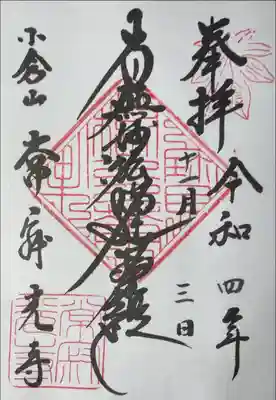 奉拝
令和四年
十一月三日
南無妙法蓮華経
小倉山
常寂光寺